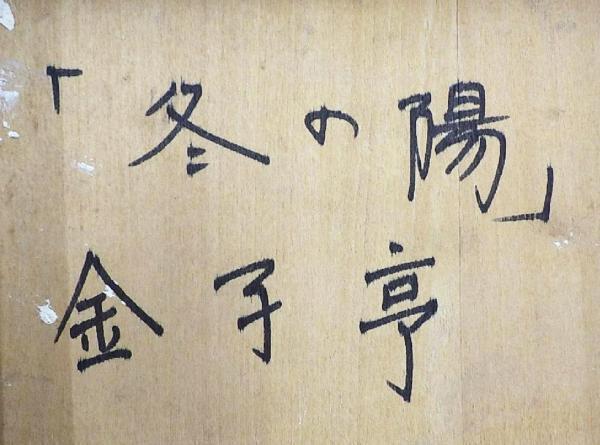 「冬の陽」
金子亨